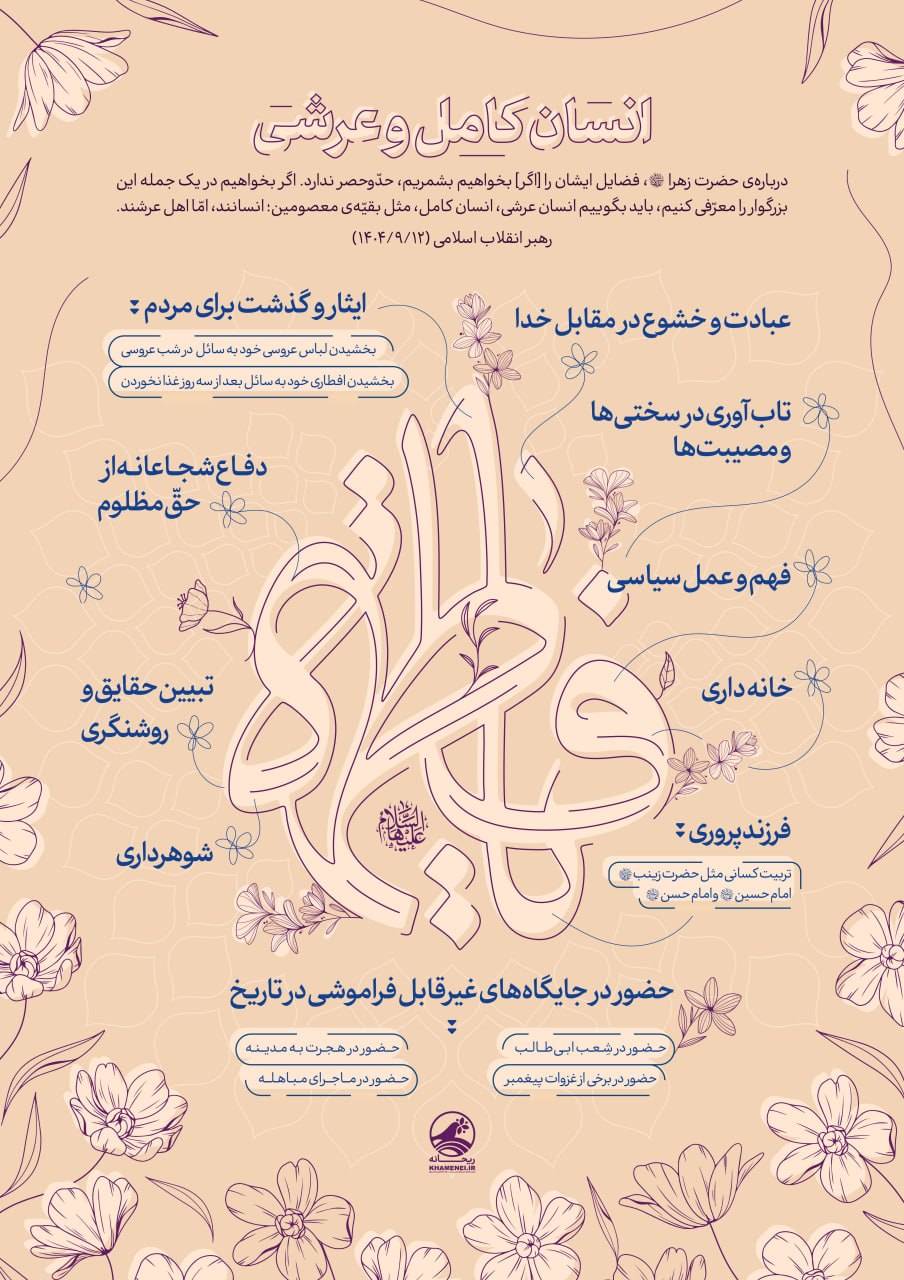 انسان کامل و عرشی
درباره‌ی حضرت زهرا ﷻ، فضایل ایشان را [اگر] بخواهیم بشمریم، حدّوحصر ندارد. اگر بخواهیم در یک جمله این
بزرگوار را معرّفی کنیم، باید بگوییم انسان عرشی، انسان کامل، مثل بقیّه‌ی معصومین؛ انسانند، امّا اهل عرشند.
رهبر انقلاب اسلامی (۱۴۰۴/۹/۱۲)
عبادت و خشوع در مقابل خدا
تاب‌آوری در سختی‌ها
و مصیبت‌ها
فهم و عمل سیاسی
خانه‌داری
فرزندپروری
تربیت کسانی مثل حضرت زینب
امام حسین و امام حسن
ایثار و گذشت برای مردم
بخشیدن لباس عروسی خود به سائل در شب عروسی
بخشیدن افطاری خود به سائل بعد از سه روز غذا نخوردن
دفاع شجاعانه از
حقّ مظلوم
تبیین حقایق و
روشنگری
شوهرداری
فاطمه
علیها السّلام
حضور در جایگاه‌های غیرقابل فراموشی در تاریخ
حضور در شِعب ابی‌طالب
حضور در برخی از غزوات پیغمبر
حضور در هجرت به مدینه
حضور در ماجرای مباهله
ریحانه
KHAMENEI.IR